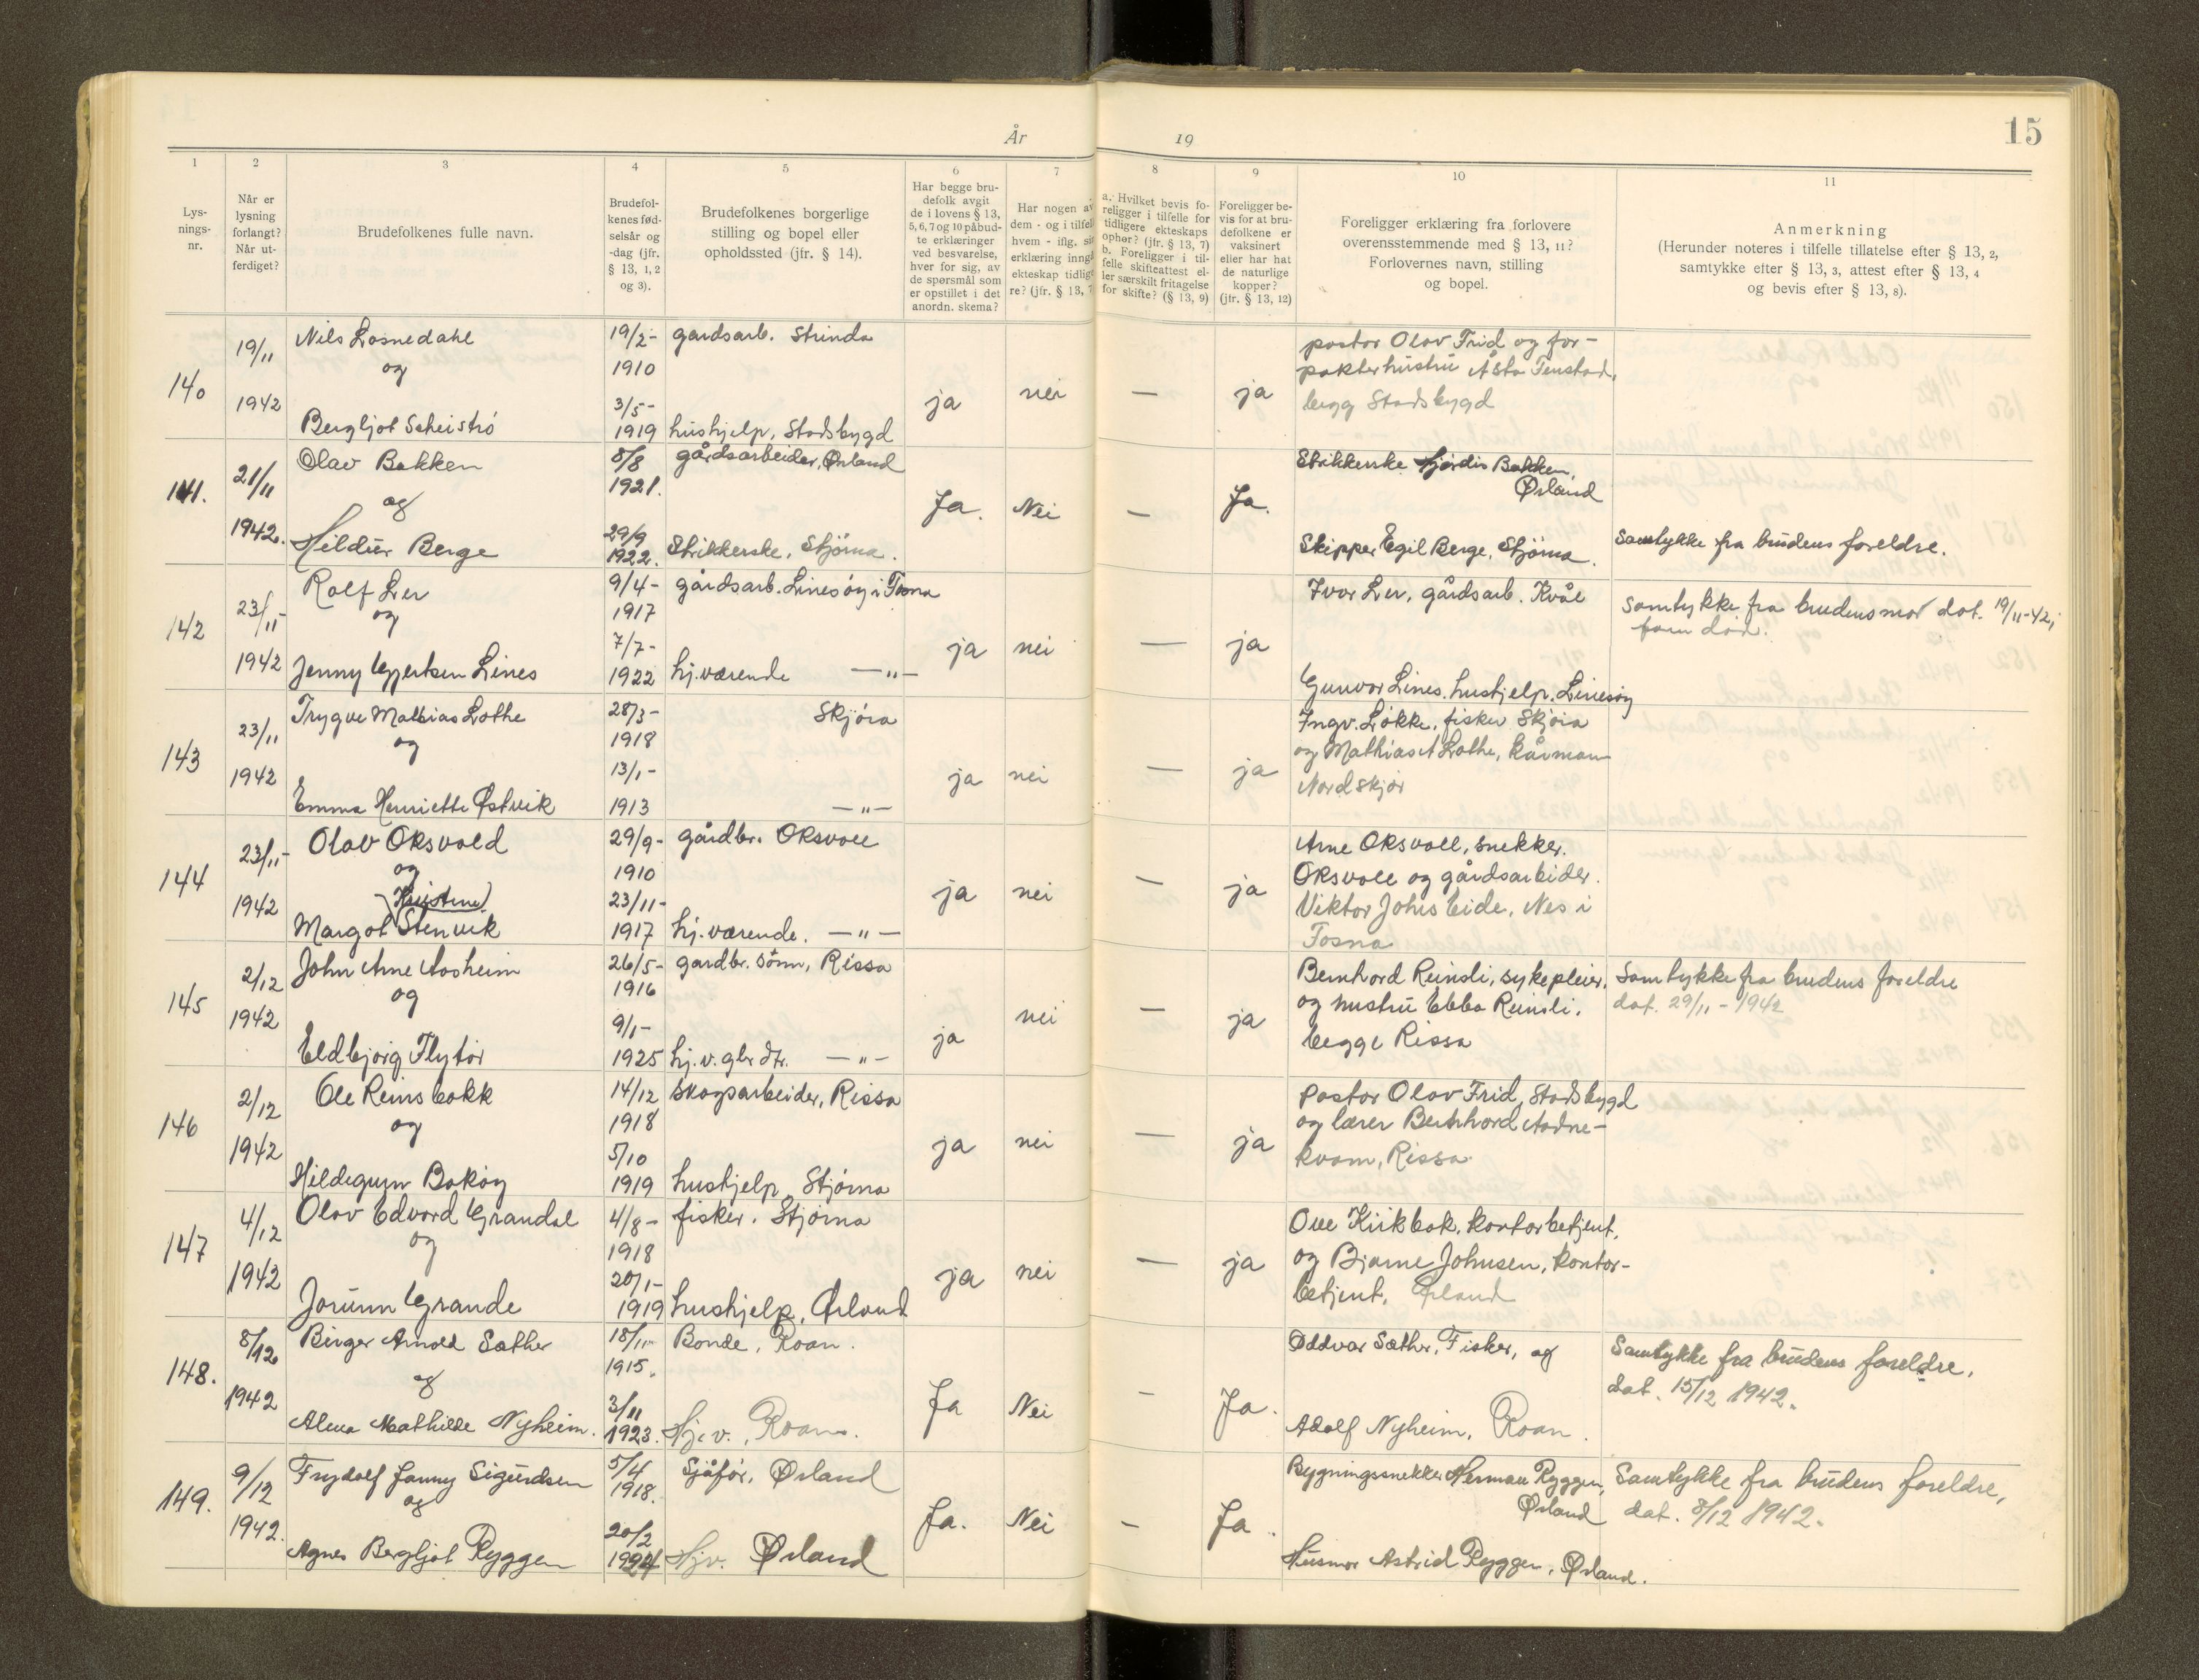 År 19
15
1 2 3 4 5 6 7 8 9 10 11
Lys-
nings-
nr.
Når er
lysning
forlangt?
Når ut-
ferdiget?
Brudefolkenes fulle navn.
Brudefol-
kenes fød-
selsår og
-dag (jfr.
§ 13, 1, 2
og 3).
Brudefolkenes borgerlige
stilling og bopel eller
opholdssted (jfr. § 14).
Har begge bru-
defolk avgit
de i lovens § 13,
5, 6, 7 og 10 påbud-
te erklæringer
ved besvarelse,
hver for sig, av
de spørsmål som
er opstillet i det
anordn. skema?
Har nogen av
dem - og i tilfel
hvem - iflg. si
erklæring inng
ekteskap tidlig
re? (jfr. § 13, 7
a. Hvilket bevis fo-
religger i tilfelle for
tidligere ekteskaps
ophør? (jfr. § 13, 7)
b. Foreligger i til-
felle skifteattest el-
ler særskilt fritagelse
for skifte? (§ 13, 9)
Foreligger be-
vis for at bru-
defolkene er
vaksinert
eller har hat
de naturlige
kopper?
(jfr. § 13, 12)
Foreligger erklæring fra forlovere
overensstemmende med § 13, 11?
Forlovernes navn, stilling
og bopel.
Anmerkning
(Herunder noteres i tilfelle tillatelse efter § 13, 2,
samtykke efter § 13, 3, attest efter § 13, 4
og bevis efter § 13, 8).
140
19/11
1942
Nils Losnedahl
og
Bergljot Scheiströ
19/2-
1910
3/5-
1919
gardsarb. Strinda
hushjelp, Stadsbygd
ja
nei
—
ja
pastor Olav Frid og for-
pakterhustru Åsta Tenstad,
begg Stadsbygd
141.
21/11
1942.
Olav Bakken
og
Hildur Berge
8/8
1921.
29/9
1922.
gårdsarbeider, Ørland
Strikkerske, Stjörna.
Ja.
Nei
—
Ja.
Strikkerske Hjördis Bakken,
Ørland
Skipper Egil Berge, Stjörna.
Samtykke fra brudens foreldre.
142
23/11-
1942
Rolf Ler
og
Jenny Gjertsen Lines
9/4-
1917
7/7-
1922
gårdsarb. Linesöy i Tosna
hj. værende —"—
ja
nei
—
ja
Ivar Ler, gårdsarb. Kvål
Gunvor Lines, hushjelp. Linesöy
Samtykke fra brudens mor dat. 19/11-42;
faren död.
143
23/11
1942
Trygve Mathias Lothe
og
Emma Henriette Østvik
28/3-
1918
13/1-
1913
Skjöra
—"—
ja
nei
—
ja
Ingv. Løkke, fisker Skjöra
og Mathias A Lothe, kårmann
Nordskjör
144
23/11-
1942
Olav Oksvold
og
(Kristine)
Margot Stenvik
29/9-
1910
23/11-
1917
gårdbr. Oksvoll
hj. værende. —"—
ja
nei
—
ja
Arne Oksvoll, snekker.
Oksvoll og gårdsarbeider.
Viktor Johs Eide, Nes i
Tosna
145
2/12
1942
John Arne Aasheim
og
Eldbjörg Flytör
26/5-
1916
9/1-
1925
gardbr. sönn, Rissa
hj. v. gbr dtr. —"—
ja
nei
—
ja
Bernhard Reinsli, sykepleier,
og hustru Ebba Reinsli,
begge Rissa
Samtykke fra brudens foreldre
dat. 29/11-1942
146
2/12
1942
Ole Reinsbakk
og
Hildegunn Bakøy
14/12
1918
5/10
1919
skogsarbeider, Rissa
hushjelp, Stjörna
ja
nei
—
ja
Pastor Olav Frid, Stadsbygd
og lærer Bernhard Aadne-
kvam, Rissa
147
4/12
1942
Olav Edvard Grandal
og
Jorunn Grande
4/8-
1918
20/1-
1919
fisker. Stjörna
hushjelp, Ørland
ja
nei
—
ja
Ove Kirkbak, kontorbetjent,
og Bjarne Johnsen, kontor-
betjent, Ørland
148.
8/12
1942
Birger Arnold Sæther
og
Alma Mathilde Nyheim.
18/11-
1915.
3/11
1923.
Bonde, Roan.
Hj.v., Roan.
Ja
Nei
—
Ja.
Oddvar Sæther, Fisker, og
Adolf Nyheim, Roan.
Samtykke fra brudens foreldre,
dat. 15/12 1942.
149.
9/12
1942.
Frydolf Janny Sigurdsen
og
Agnes Bergljot Ryggen
5/4
1918.
20/2
1924
Sjåför, Ørland
Hjv. Ørland
Ja.
Nei
—
Ja.
Bygningssnekker Herman Ryggen,
Ørland
Husmor Astrid Ryggen, Ørland.
Samtykke fra brudens foreldre,
dat. 8/12 1942.